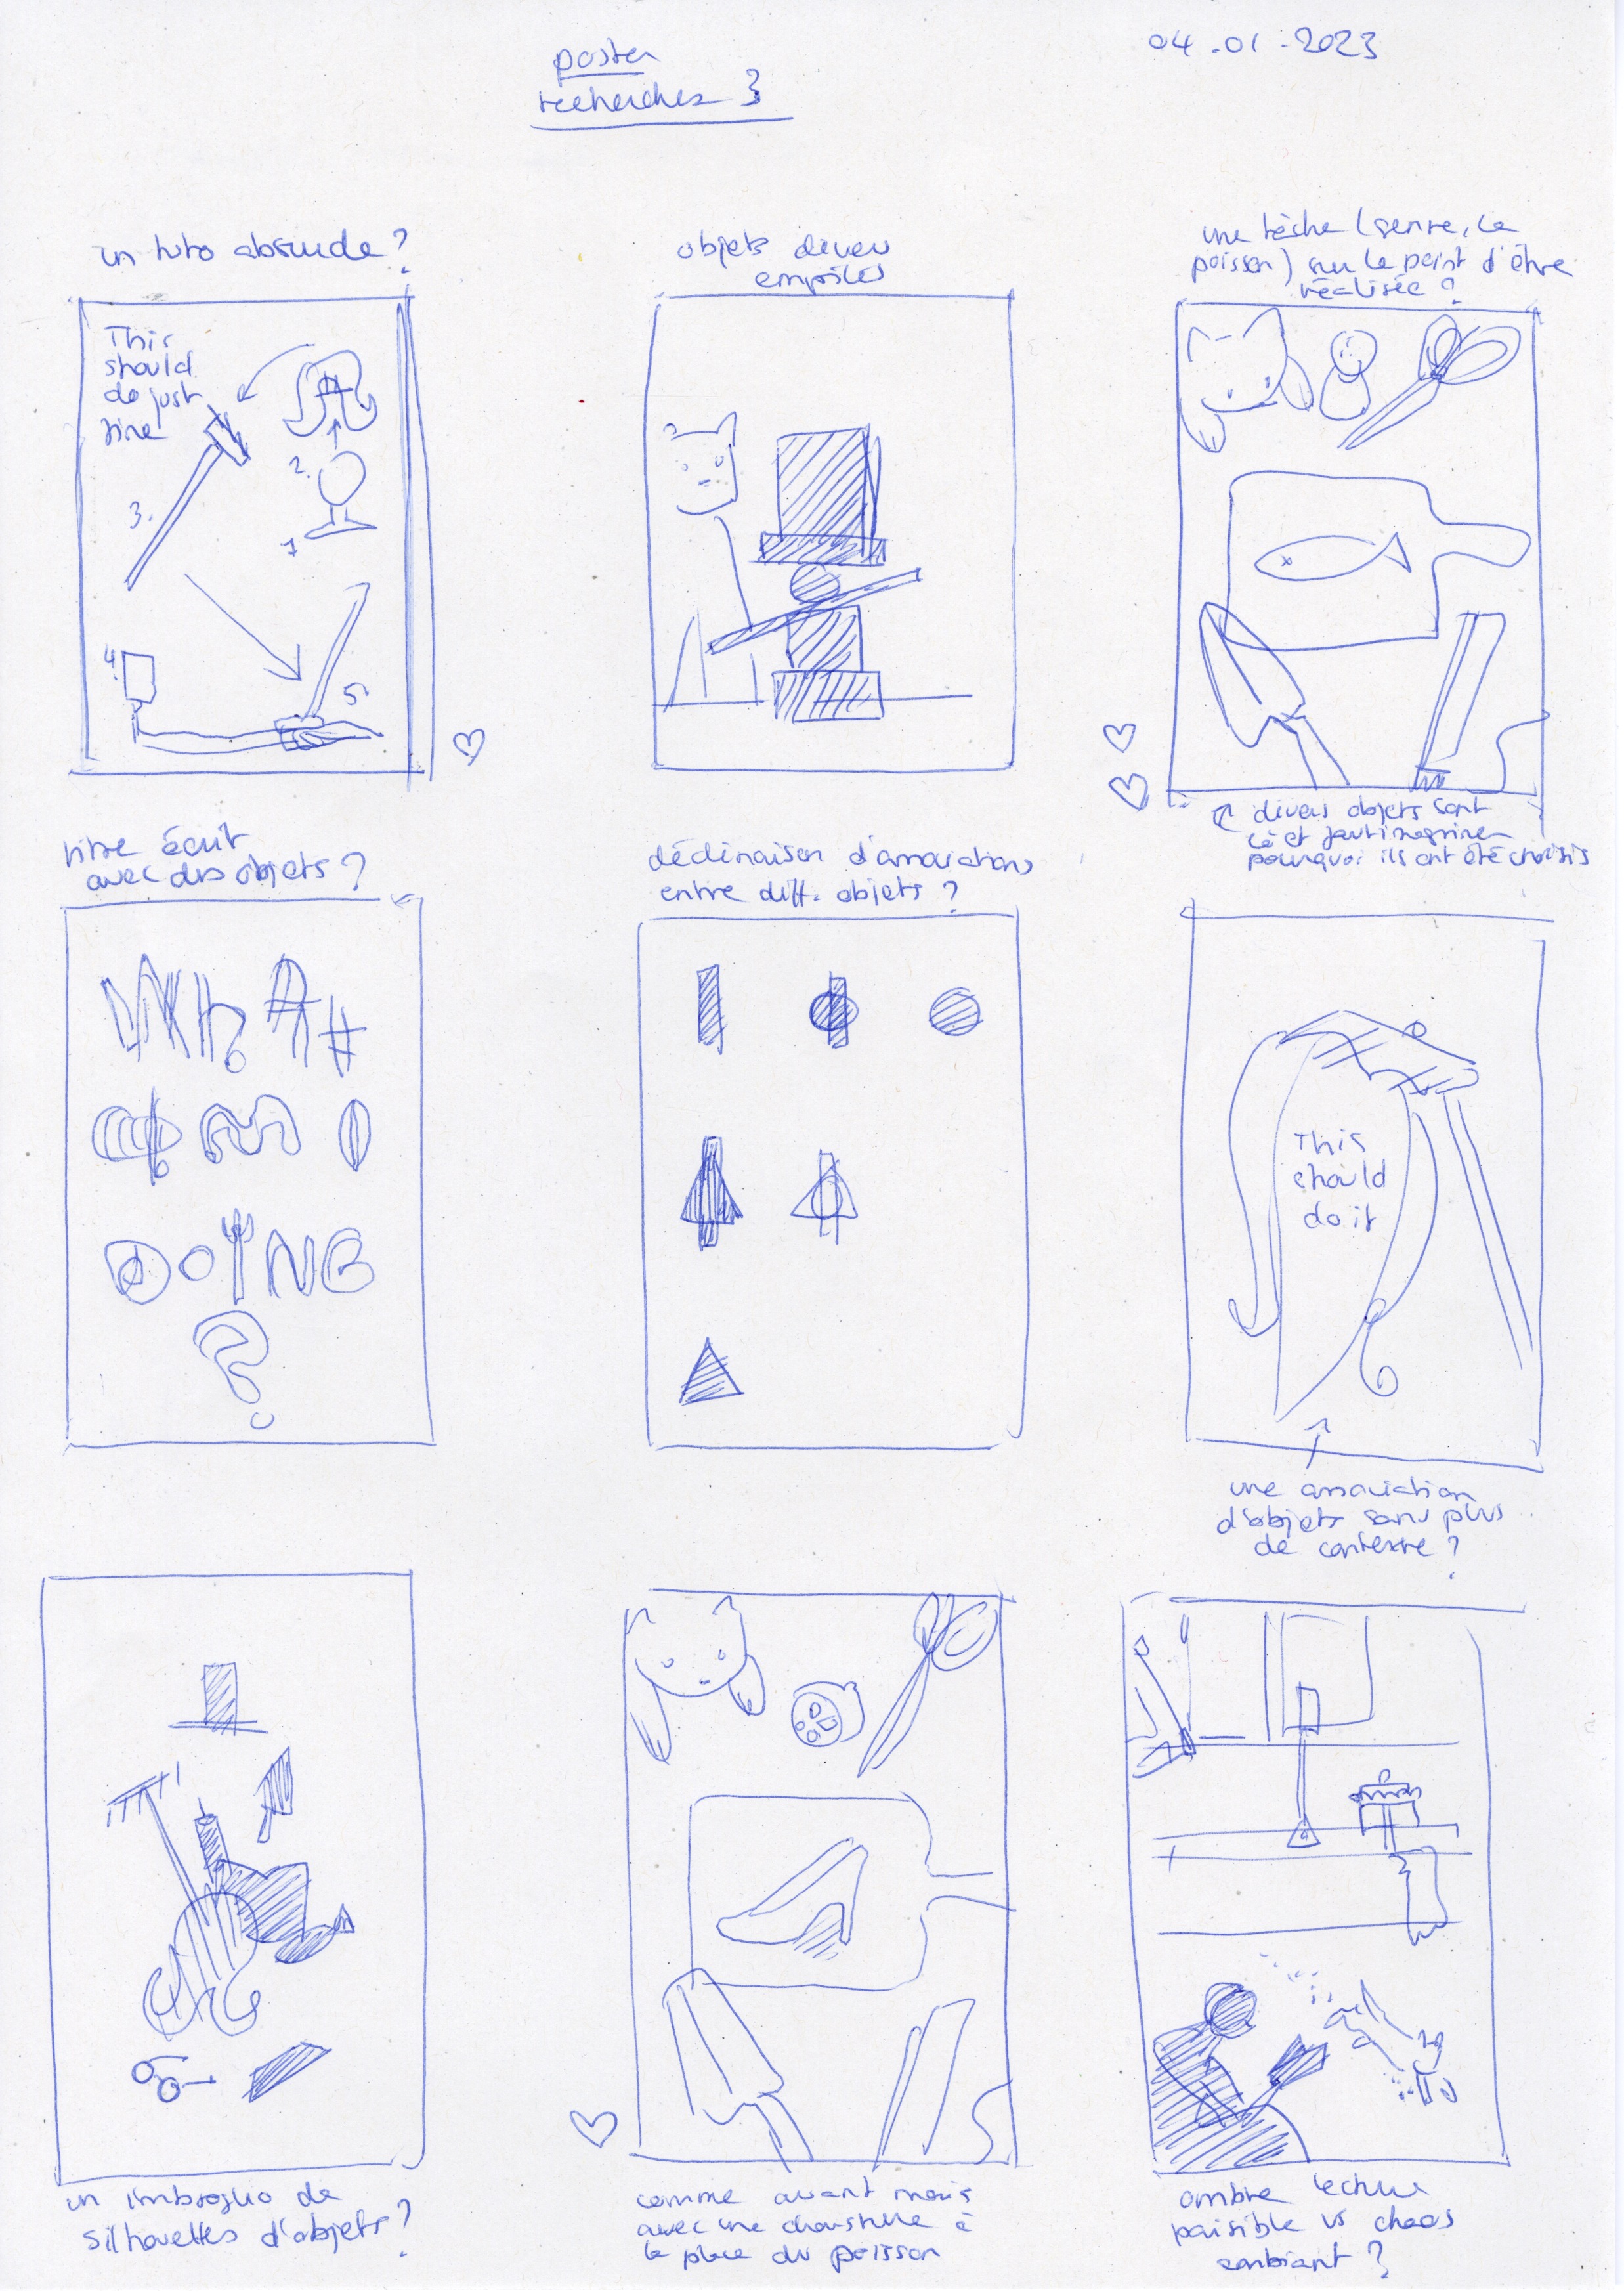 poster
recherches 3
04.01.2023
un tuto absurde ?
This
should
do just
fine
3.
2.
1
4.
5.
objets divers
empilés
une tâche (genre, le
poisson) sur le point d'être
réalisée ?
divers objets sont
là et faut imaginer
pourquoi ils ont été choisis
titre écrit
avec des objets ?
WhAt
DOING
?
déclinaison d'associations
entre diff. objets ?
This
should
do it
une association
d'objets sans plus
de contexte ?
un imbroglio de
silhouettes d'objets ?
comme avant mais
avec une chaussure à
la place du poisson
ombre lecture
paisible vs chaos
ambiant ?